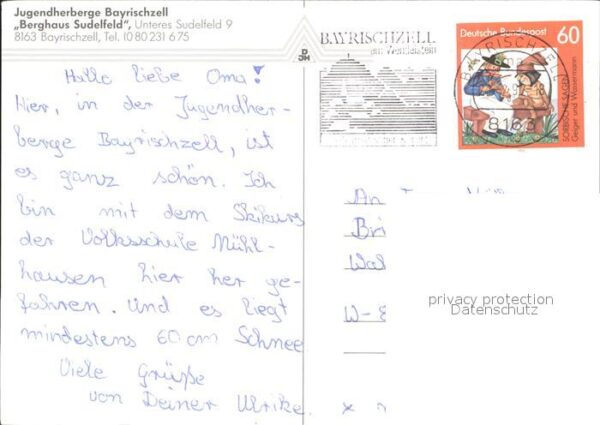 Jugendherberge Bayrischzell
„Berghaus Sudelfeld", Unteres Sudelfeld 9
8163 Bayrischzell, Tel. (0 80 23) 6 75
DJH
BAYRISCHZELL
am Wendelstein
Deutsche Bundespost 60
SORBISCHE SAGEN
Geiger und Wassermann
BAYRISCHZELL
8163
Hallo liebe Oma!
Hier, in der Jugendher-
berge Bayrischzell, ist
es ganz schön. Ich
bin mit dem Skikurs
der Volksschule Mühl-
hausen hier her ge-
fahren. Und es liegt
mindestens 60 cm Schnee
Viele Grüße
von Deiner Ulrike.
An
Bri
Wal
W-8
privacy protection
Datenschutz